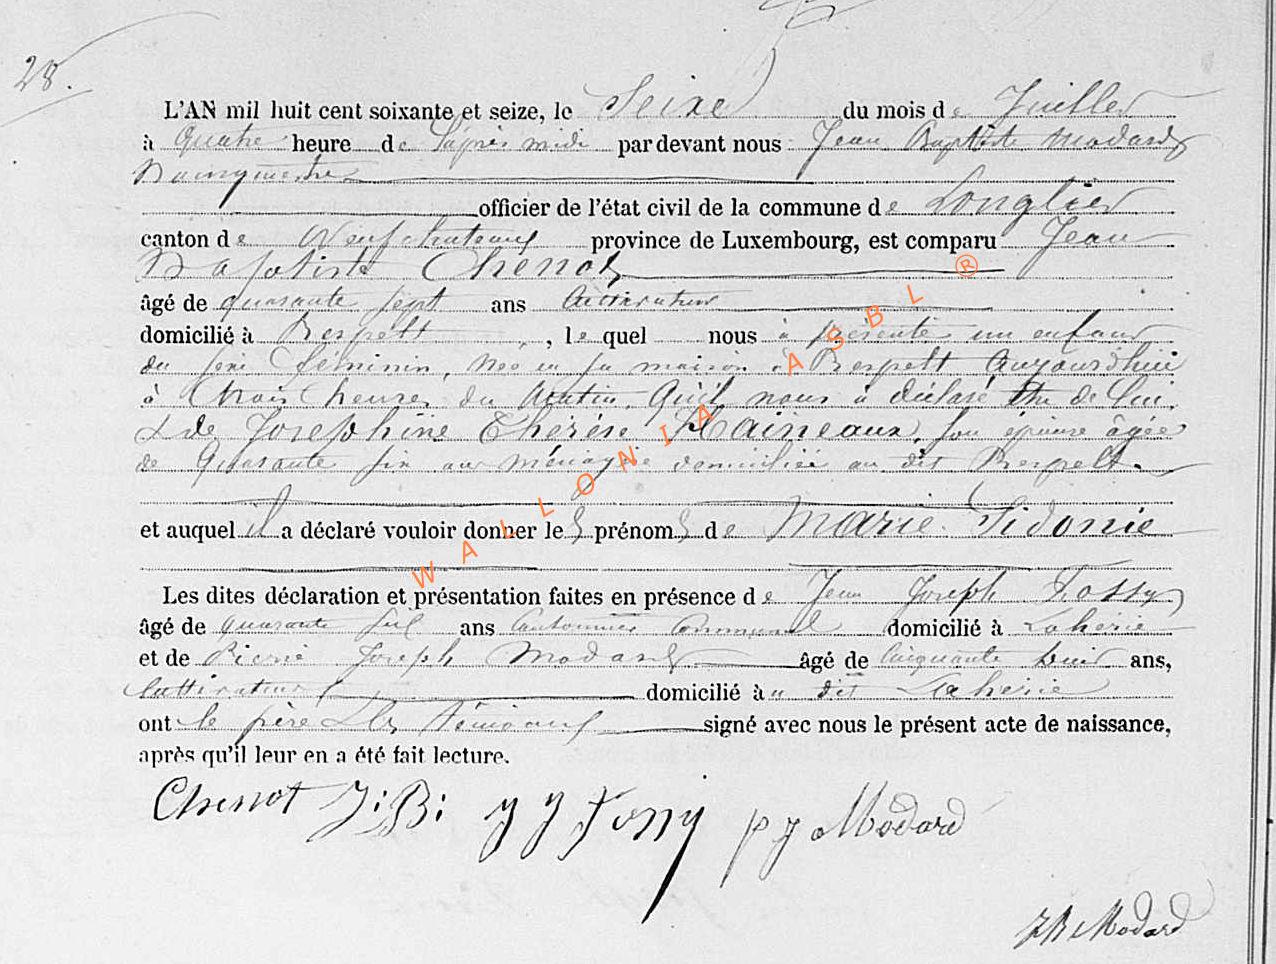 28.
L'AN mil huit cent soixante et seize, le Seize du mois de Juillet
à quatre heure de l'après midi par devant nous Jean Baptiste Modard
Bourgmestre
officier de l'état civil de la commune de Longlier
canton de Neufchateau province de Luxembourg, est comparu Jean
Baptiste Chenot
âgé de quarante sept ans Cultivateur
domicilié à Respelt, le quel nous à présenté un enfant
du sexe féminin, née en sa maison à Respelt aujourd'hui
à trois heures du matin, Qu'il nous à déclaré être de lui
& de Joséphine Thérèse Haineaux, son épouse âgée
de Quarante six ans ménagère domiciliée au dit Respelt.
et auquel il a déclaré vouloir donner les prénoms de Marie Sidonie
Les dites déclaration et présentation faites en présence de Jean Joseph Fossy
âgé de quarante six ans Cantonnier Communal domicilié à Laherie
et de Pierre Joseph Modard âgé de Cinquante huit ans,
Cultivateur domicilié au dit Laherie
ont le père & les témoins signé avec nous le présent acte de naissance,
après qu'il leur en a été fait lecture.
Chenot J: B: J J Fossy p J Modard
J B Modard
WALLONIA ASBL ®